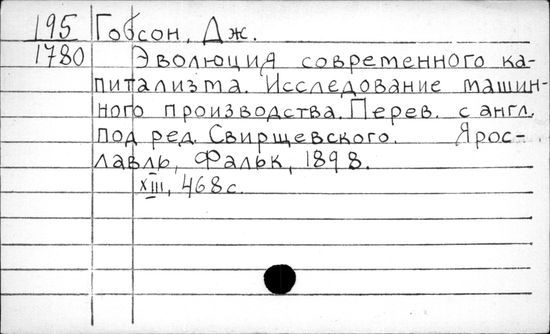 195 Гобсон, Дж.
1780 Эволюция современного ка-
питализма. Исследование машин-
ного производства. Перев. с англ.
под ред. Свирщевского. Ярос-
лавль, Фальк, 1898.
XIII, 468 с.